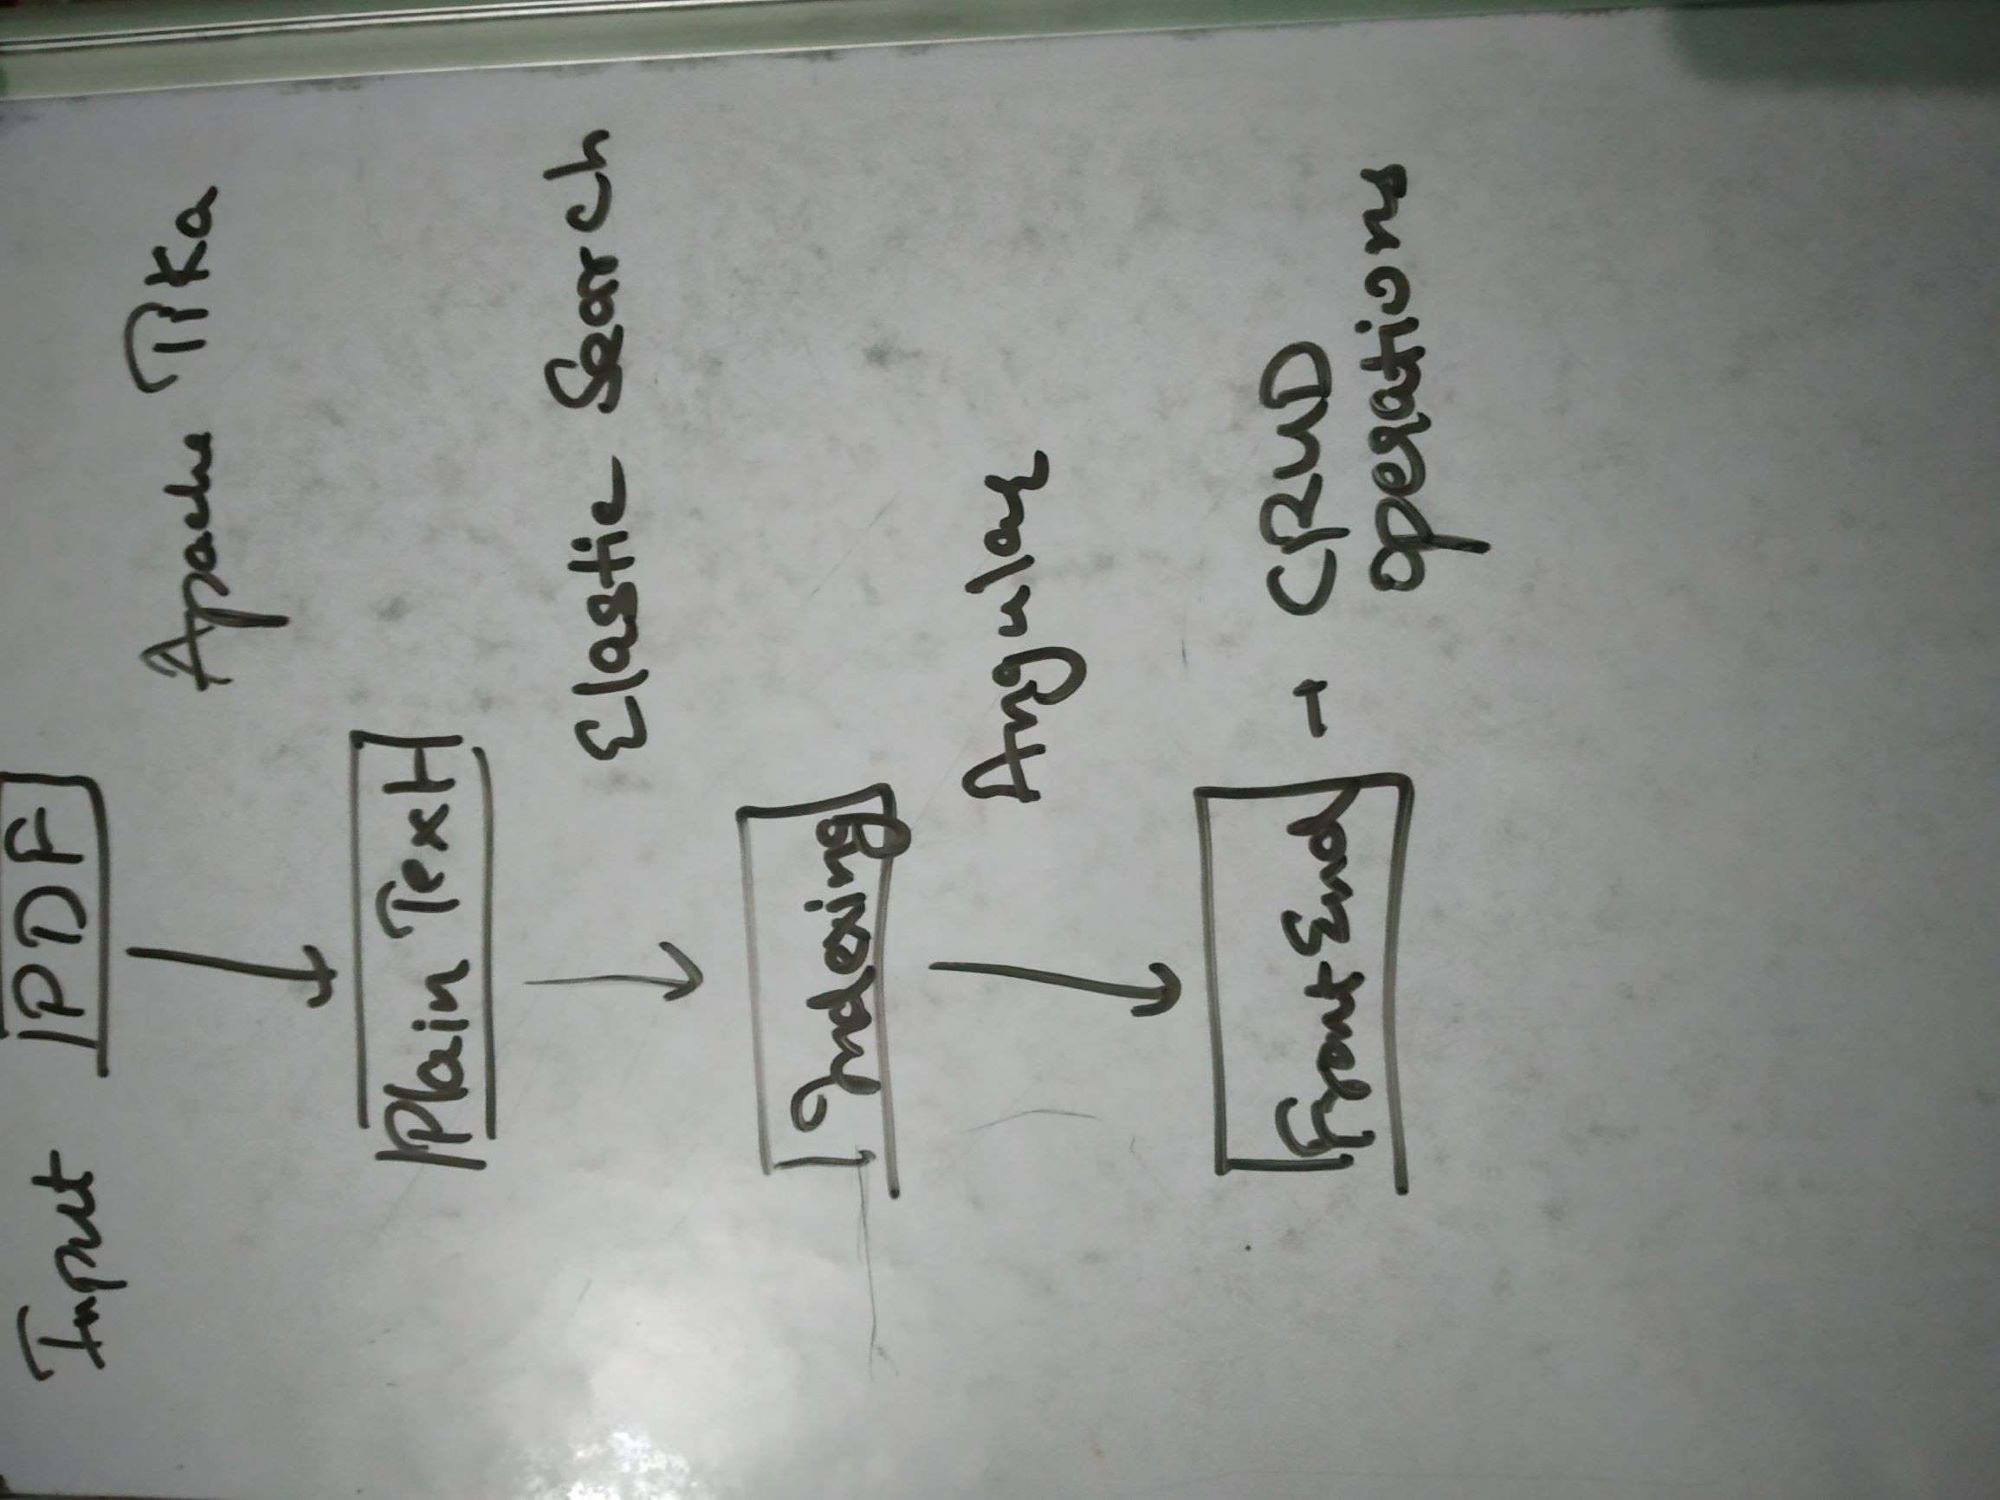 Input PDF
Apache Tika
Plain Text
Elastic Search
Indexing
Angular
Front End → CRUD
operations